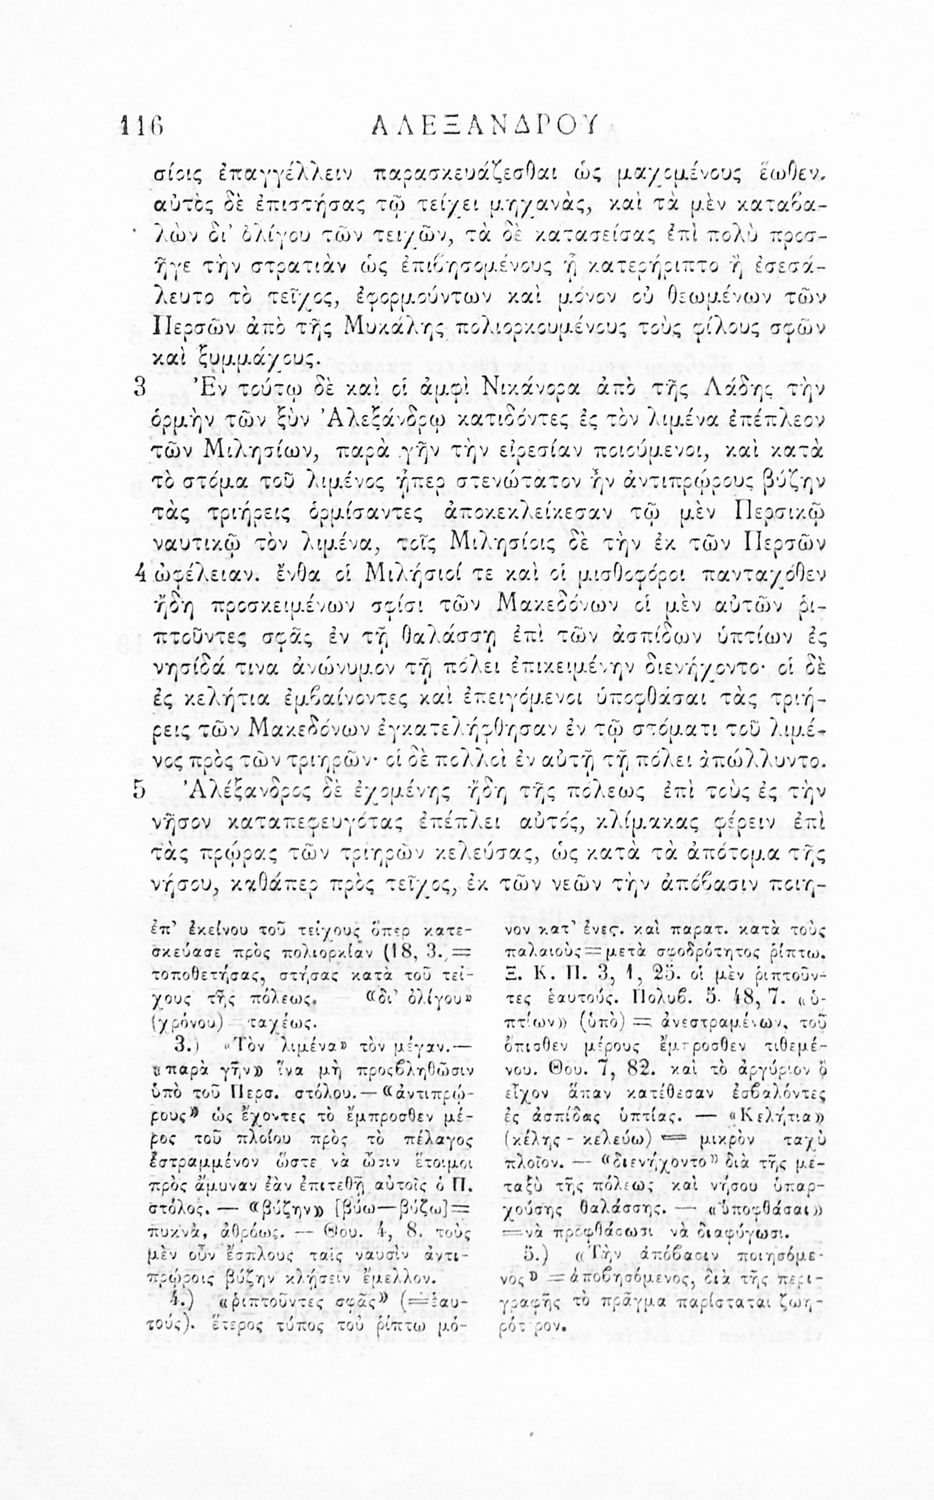 116 ΑΛΕΞΑΝΔΡΟΥ
σίοις ἐπαγγέλλειν παρασκευάζεσθαι ὡς μαχομένους ἕωθεν.
αὐτὸς δὲ ἐπιστήσας τῷ τείχει μηχανὰς, καὶ τὰ μὲν καταβα-
λὼν δι' ὀλίγου τῶν τειχῶν, τὰ δὲ κατασείσας ἐπὶ πολὺ προσ-
ῆγε τὴν στρατιὰν ὡς ἐπιβησομένους ᾗ κατερήριπτο ἢ ἐσεσά-
λευτο τὸ τεῖχος, ἐφορμούντων καὶ μόνον οὐ θεωμένων τῶν
Περσῶν ἀπὸ τῆς Μυκάλης πολιορκουμένους τοὺς φίλους σφῶν
καὶ ξυμμάχους.
3 Ἐν τούτῳ δὲ καὶ οἱ ἀμφὶ Νικάνορα ἀπὸ τῆς Λάδης τὴν
ὁρμὴν τῶν ξὺν Ἀλεξάνδρῳ κατιδόντες ἐς τὸν λιμένα ἐπέπλεον
τῶν Μιλησίων, παρὰ γῆν τὴν εἰρεσίαν ποιούμενοι, καὶ κατὰ
τὸ στόμα τοῦ λιμένος ᾗπερ στενώτατον ἦν ἀντιπρώρους βύζην
τὰς τριήρεις ὁρμίσαντες ἀποκεκλείκεσαν τῷ μὲν Περσικῷ
ναυτικῷ τὸν λιμένα, τοῖς Μιλησίοις δὲ τὴν ἐκ τῶν Περσῶν
4 ὠφέλειαν. ἔνθα οἱ Μιλήσιοί τε καὶ οἱ μισθοφόροι πανταχόθεν
ἤδη προσκειμένων σφίσι τῶν Μακεδόνων οἱ μὲν αὐτῶν ῥι-
πτοῦντες σφᾶς ἐν τῇ θαλάσσῃ ἐπὶ τῶν ἀσπίδων ὑπτίων ἐς
νησῖδά τινα ἀνώνυμον τῇ πόλει ἐπικειμένην διενήχοντο· οἱ δὲ
ἐς κελήτια ἐμβαίνοντες καὶ ἐπειγόμενοι ὑποφθάσαι τὰς τριή-
ρεις τῶν Μακεδόνων ἐγκατελήφθησαν ἐν τῷ στόματι τοῦ λιμέ-
νος πρὸς τῶν τριηρῶν· οἱ δὲ πολλοὶ ἐν αὐτῇ τῇ πόλει ἀπώλλυντο.
5 Ἀλέξανδρος δὲ ἐχομένης ἤδη τῆς πόλεως ἐπὶ τοὺς ἐς τὴν
νῆσον καταπεφευγότας ἐπέπλει αὐτός, κλίμακας φέρειν ἐπὶ
τὰς πρώρας τῶν τριηρῶν κελεύσας, ὡς κατὰ τὰ ἀπότομα τῆς
νήσου, καθάπερ πρὸς τεῖχος, ἐκ τῶν νεῶν τὴν ἀπόβασιν ποιη-
ἐπ' ἐκείνου τοῦ τείχους ὅπερ κατε-
σκεύασε πρὸς πολιορκίαν (18, 3. =
τοποθετήσας, στήσας κατὰ τοῦ τεί-
χους τῆς πόλεως. «δι' ὀλίγου»
(χρόνου) — ταχέως.
3.) «Τὸν λιμένα» τὸν μέγαν.—
«παρὰ γῆν» ἵνα μὴ προσβληθῶσιν
ὑπὸ τοῦ Περσ. στόλου.— «ἀντιπρώ-
ρους» ὡς ἔχοντες τὸ ἔμπροσθεν μέ-
ρος τοῦ πλοίου πρὸς τὸ πέλαγος
ἐστραμμένον ὥστε νὰ ὦσιν ἕτοιμοι
πρὸς ἄμυναν ἐὰν ἐπιτεθῇ αὐτοῖς ὁ Π.
στόλος. — «βύζην» [βύω—βύζω]=
πυκνὰ, ἀθρόως. — Θου. 4, 8. τοὺς
μὲν οὖν ἔσπλους ταῖς ναυσὶν ἀντι-
πρώροις βύζην κλήσειν ἔμελλον.
4.) «ῥιπτοῦντες σφᾶς» (=ἑαυ-
τούς). ἕτερος τύπος τοῦ ῥίπτω μό-
νον κατ' ἐνεσ. καὶ παρατ. κατὰ τοὺς
παλαιοὺς=μετὰ σφοδρότητος ῥίπτω.
Ξ. Κ. Π. 3, 1, 25. οἱ μὲν ῥιπτοῦν-
τες ἑαυτούς. Πολυβ. 5. 48, 7. «ὑ-
πτίων» (ὑπὸ) = ἀνεστραμένων, τοῦ
ὄπισθεν μέρους ἔμπροσθεν τιθεμέ-
νου. Θου. 7, 82. καὶ τὸ ἀργύριον ὃ
εἶχον ἅπαν κατέθεσαν ἐσβαλόντες
ἐς ἀσπίδας ὑπτίας. — «Κελήτια»
(κέλης - κελεύω) = μικρὸν ταχὺ
πλοῖον. — «διενήχοντο» διὰ τῆς με-
ταξὺ τῆς πόλεως καὶ νήσου ὑπαρ-
χούσης θαλάσσης. — «ὑποφθάσαι»
=νὰ προφθάσωσι νὰ διαφύγωσι.
5.) «Τὴν ἀπόβασιν ποιησόμε-
νος» =ἀποβησόμενος, διὰ τῆς περι-
γραφῆς τὸ πρᾶγμα παρίσταται ζωη-
ρότ ρον.